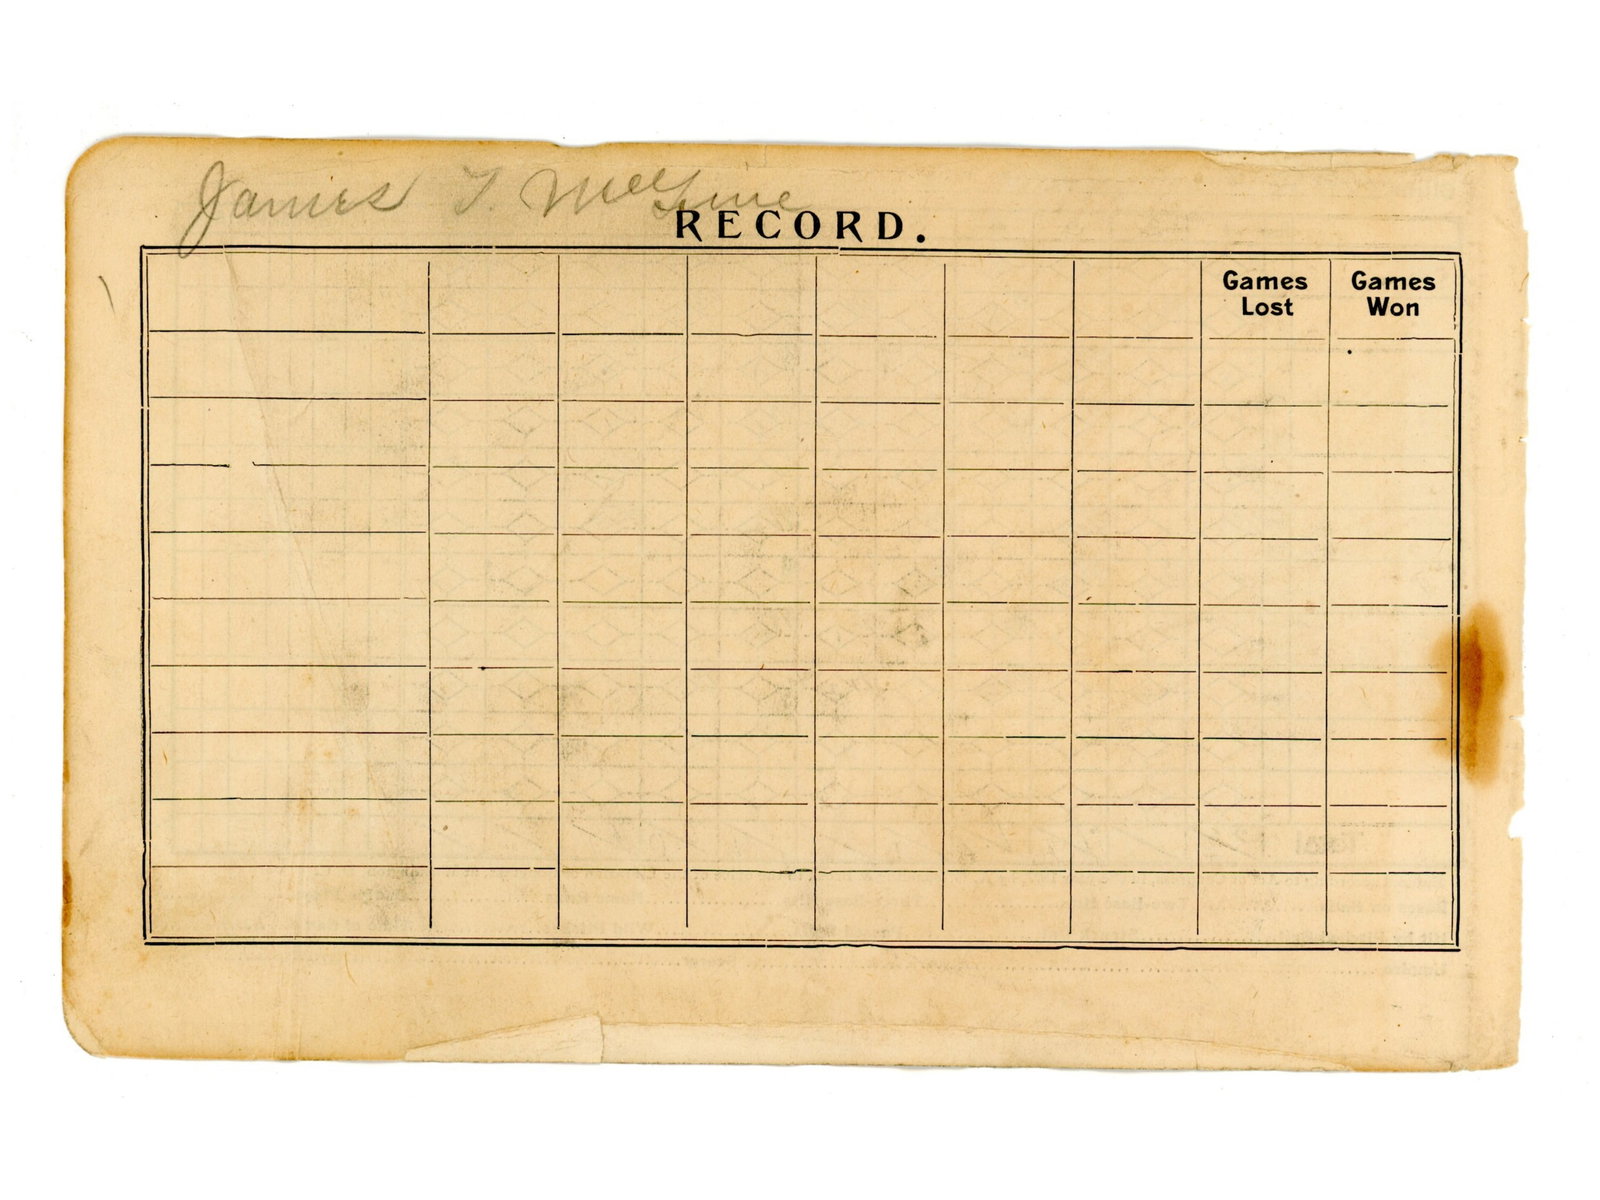 James T.
RECORD.
Games Lost
Games Won